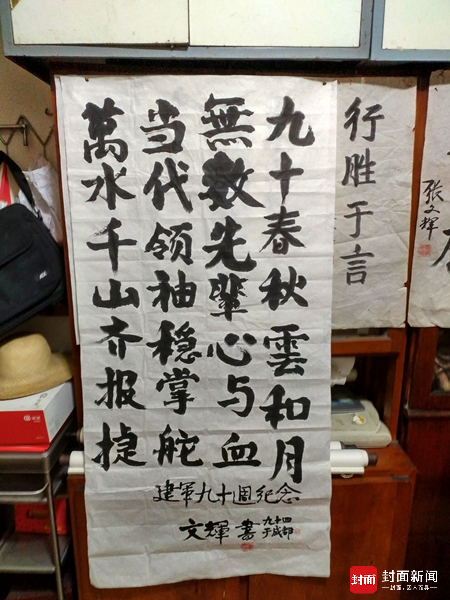 九十春秋雲和月
無数先輩心与血
当代领袖穩掌舵
萬水千山齐报捷
建军九十週纪念
文輝書
九十四
于成都
行胜于言
张文辉
封面 封面新闻